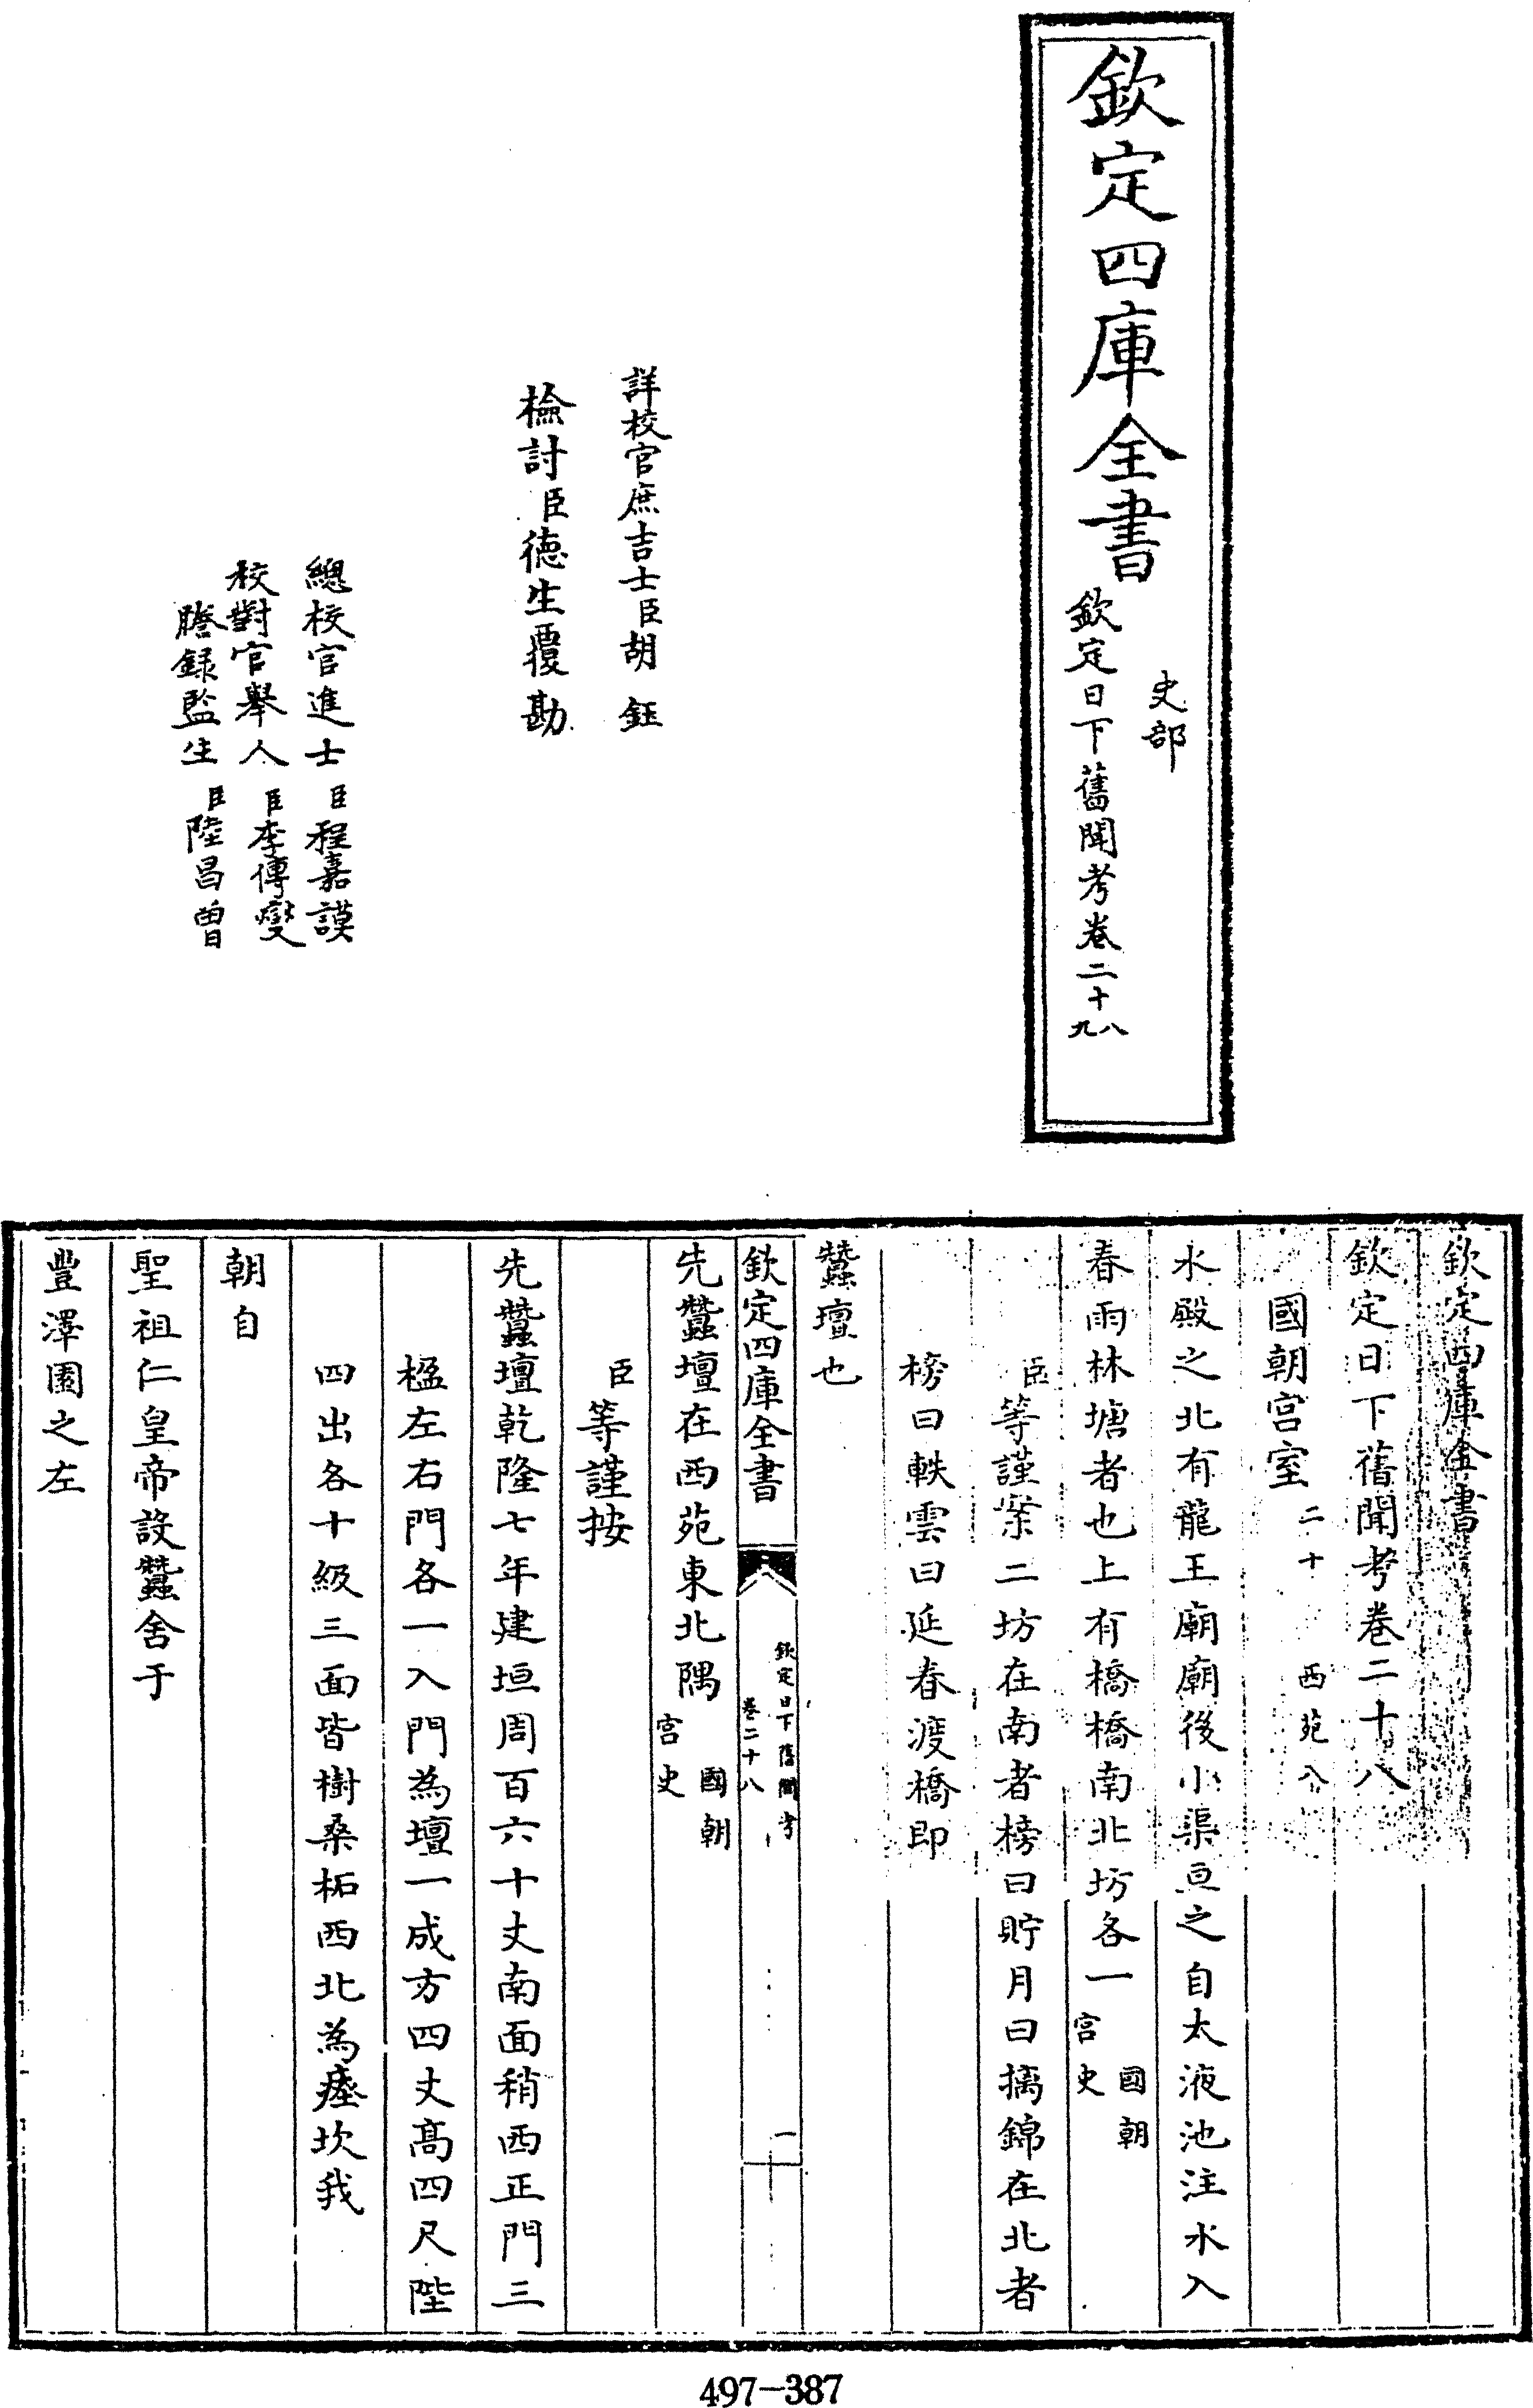 欽定四庫全書
史部
欽定日下舊聞考卷二十八九
詳校官庶吉士臣胡鈺
檢討臣德生覆勘
總校官進士臣程嘉謨
校對官舉人臣李傅燮
謄錄監生臣陸昌曾
欽定四庫全書
欽定日下舊聞考卷二十八
國朝宮室二十 西苑八
水殿之北有龍王廟廟後小渠亘之自太液池注水入
春雨林塘者也上有橋橋南北坊各一國朝宮史
臣等謹案二坊在南者榜曰貯月曰摛錦在北者
榜曰軼雲曰延春渡橋即
蠶壇也
欽定四庫全書 欽定日下舊聞考 卷二十八 一
先蠶壇在西苑東北隅國朝宮史
臣等謹按
先蠶壇乾隆七年建垣周百六十丈南面稍西正門三
楹左右門各一入門為壇一成方四丈高四尺陛
四出各十級三面皆樹桑柘西北為瘞坎我
朝自
聖祖仁皇帝設蠶舍于
豐澤園之左
497-387